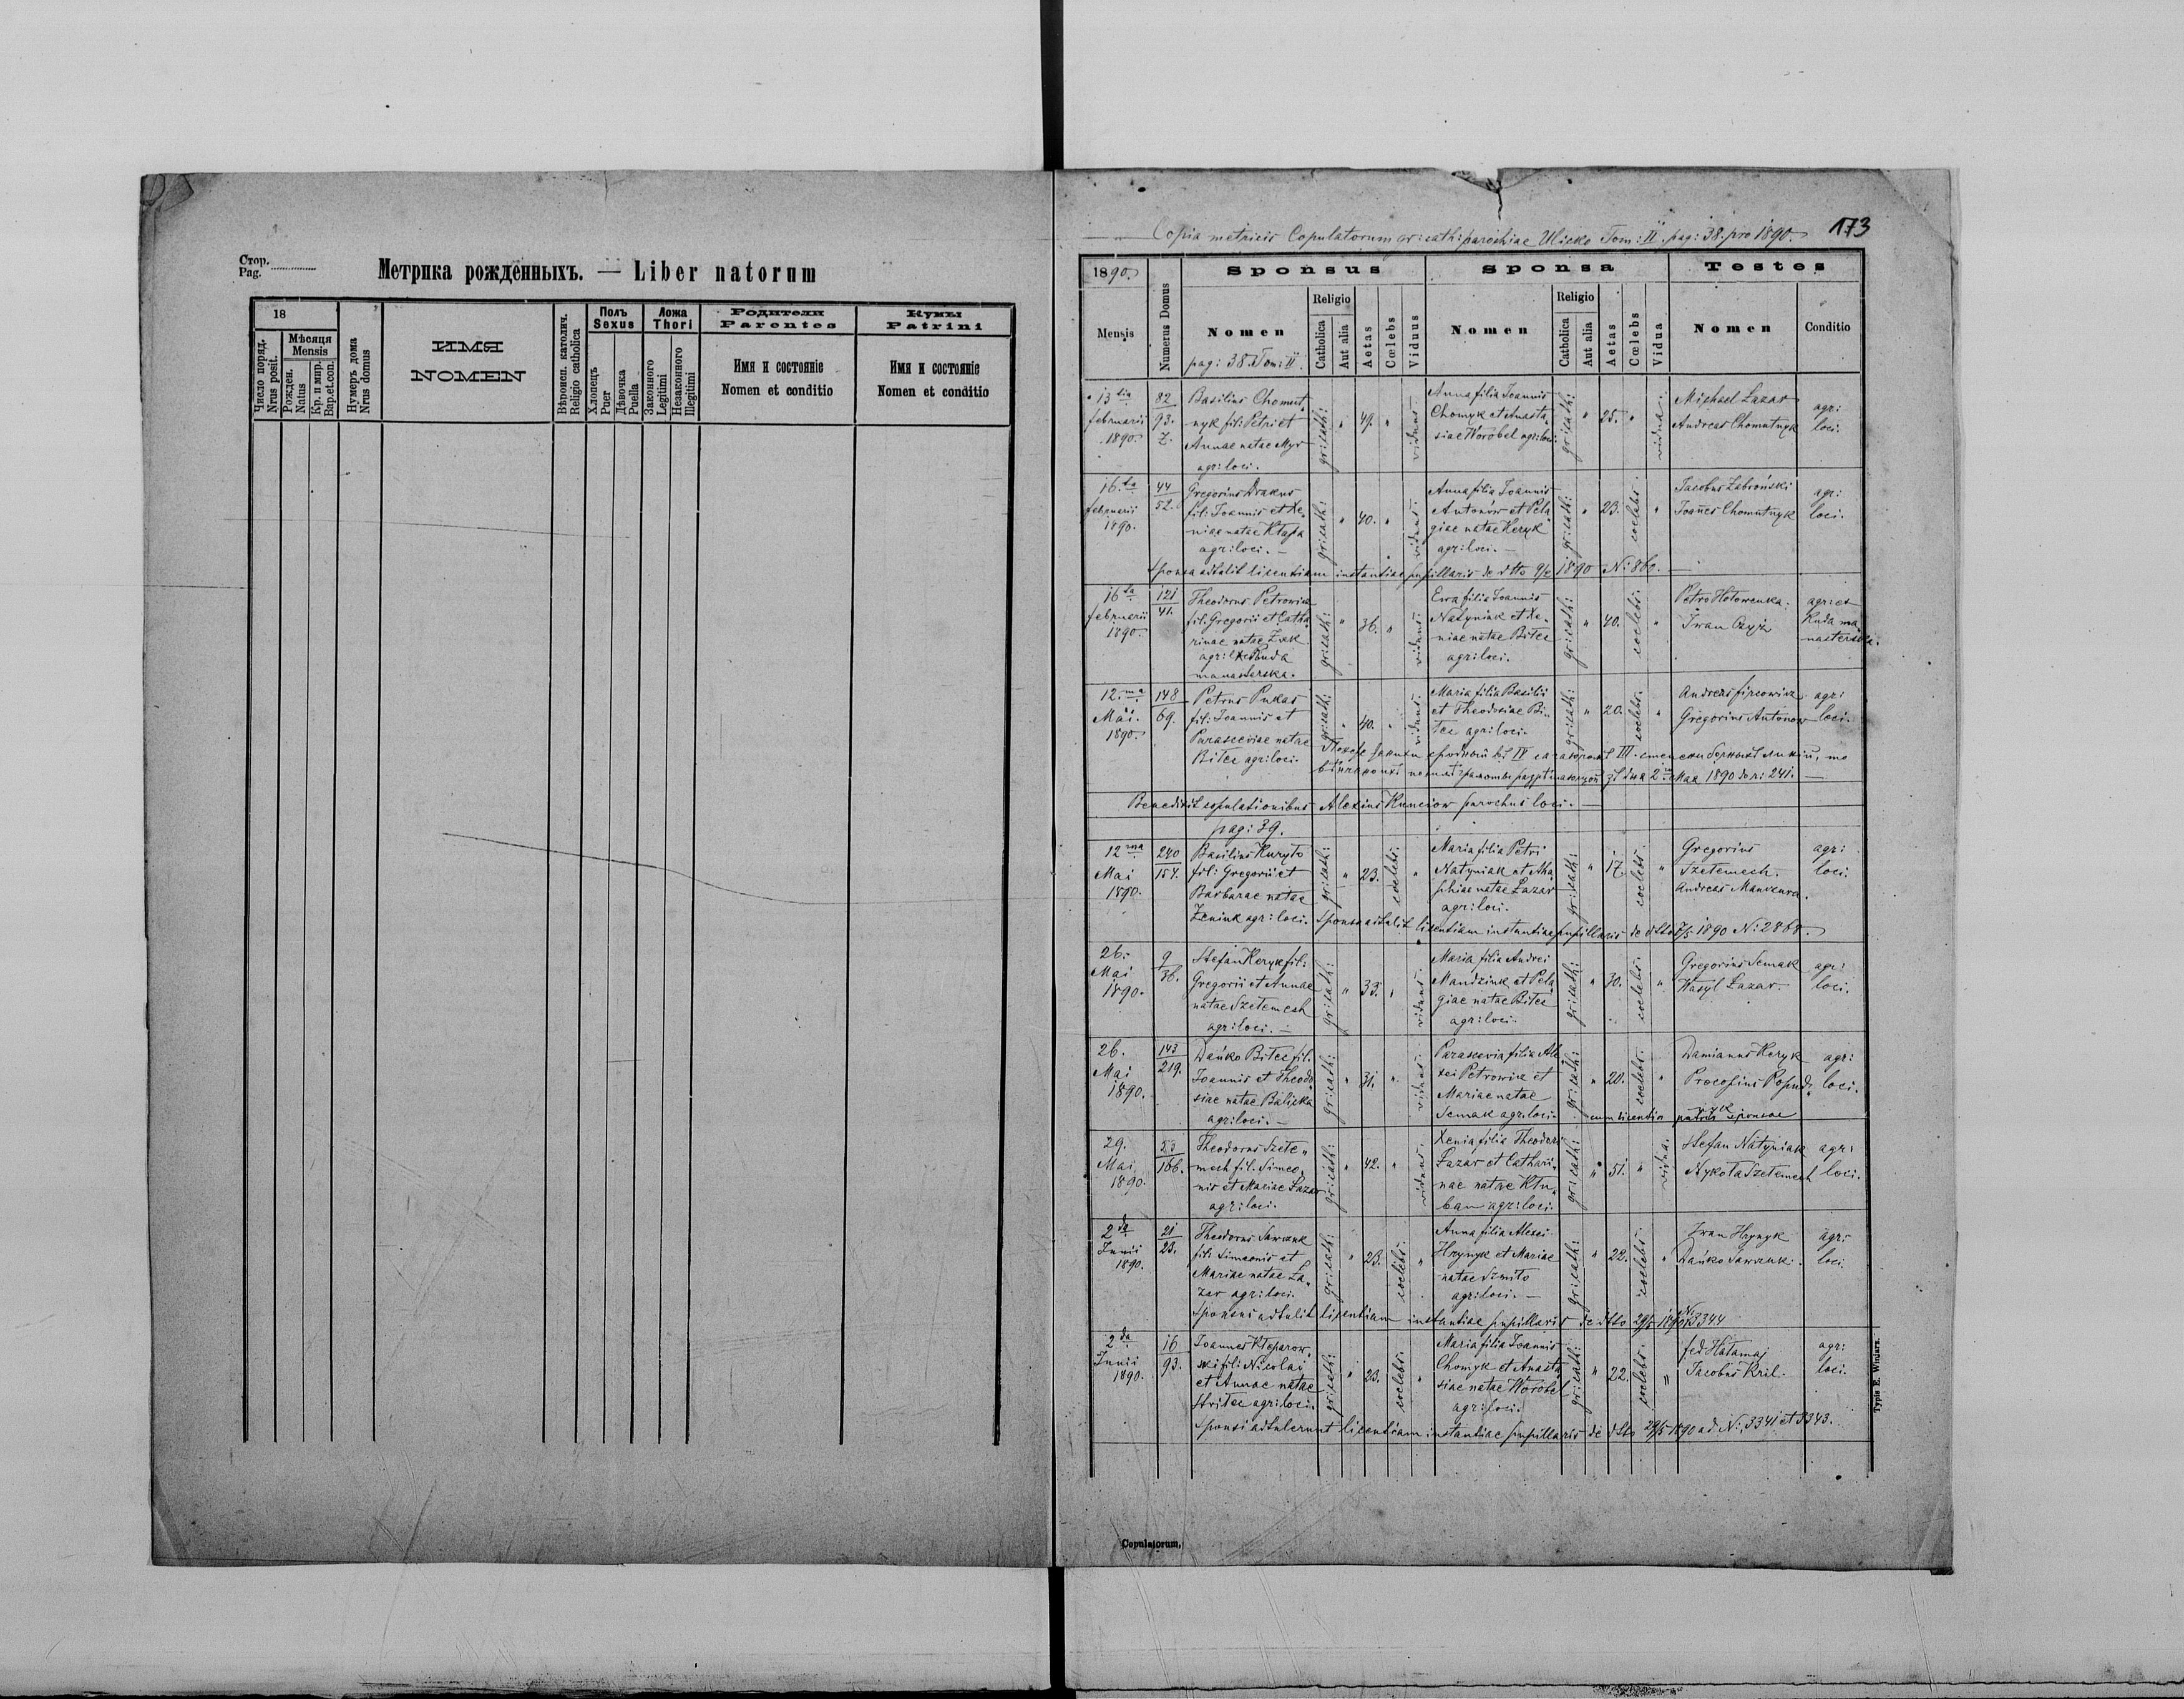 Стор.
Pag.
Метрика рожденныхъ. — Liber natorum
18
Число поряд.
Nrus posit.
Мѣсяця
Mensis
Рожден.
Natus
Кр. и мир.
Bap.et.con.
Нумеръ дома
Nrus domus
ИМЯ
NOMEN
Вѣроисп. католич.
Religio catholica
Полъ
Sexus
Хлопецъ
Puer
Дѣвочка
Puella
Ложа
Thori
Законного
Legitimi
Незаконного
Illegitimi
Родители
Parentes
Имя и состояніе
Nomen et conditio
Кумы
Patrini
Имя и состояніе
Nomen et conditio
Copia metricis Copulatorum gr: cath: parochiae Ulicko Tom: II. pag: 38. pro 1890.
173
1890.
Mensis
Numerus Domus
Sponsus
Nomen
pag: 38. Tom: II.
Religio
Catholica
Aut alia
Aetas
Cœlebs
Viduus
Sponsa
Nomen
Religio
Catholica
Aut alia
Aetas
Cœlebs
Vidua
Testes
Nomen
Conditio
13 tia
februarii
1890.
82
93.
Basilius Chomut
nyk fil: Petri et
Annae natae Myr
agr: loci.
gr: cath:
" 49. "
viduus
Anna filia Joannis
Chomyk et Anasta
siae Worobel agr: loci
gr: cath:
" 25. "
vidua.
Michael Łazar
Andreas Chomutnyk
agr:
loci.
16. ta
februarii
1890.
44
52.
Gregorius Drakus
fil: Joannis et Xe
niae natae Kłapa
agr: loci. —
gr: cath:
" 40. "
viduus.
Anna filia Joannis
Antonów et Pela
giae natae Keryk
agr: loci. —
gr: cath:
" 23.
coelebs.
"
Jacobus Zabroński
Joannes Chomutnyk
agr:
loci.
Sponsa adtulit licentiam instantiae pupillaris de dtto 9/2 1890 N: 860. —
16 ta
februarii
1890.
121
41.
Theodorus Petrowicz
fil: Gregorii et Catha
rinae natae Żuk
agr: Ruda
manasterska.
gr: cath:
" 36. "
viduus.
Ewa filia Joannis
Natyniak et Xe
niae natae Bitce
agr: loci.
gr: cath:
" 40.
coelebs.
"
Petro Hotowenka.
Iwan Czyż
agr: ex
Ruda ma
nasterska.
12. ma
Mai.
1890.
148
69.
Petrus Pukas
fil: Joannis et
Parasceviae natae
Bitce agr: loci.
gr: cath:
" 40. "
viduus.
Maria filia Basilii
et Theodosiae Bi
tce agr: loci.
gr: cath:
" 20.
coelebs.
"
Andreas
Gregorius Antonow
agr:
loci.
1890 до ч: 241. —
Benedixit copulationibus Alexius Kunciow parochus loci. —
pag: 39.
12 ma
Mai
1890.
240
154.
Basilius Kuryło
fil: Gregorii et
Barbarae natae
Zeniuk agr: loci.
gr: cath:
" 23.
coelebs.
"
Maria filia Petri
Natyniak et Aga
phiae natae Łazar
agr: loci.
gr: cath:
" 17.
coelebs.
"
Gregorius
Szetemech.
Andreas
agr:
loci.
Sponsa adtulit licentiam instantiae pupillaris de dtto 7/5 1890 N: 2868.
26.
Mai
1890.
9
36.
Stefan Keryk fil:
Gregorii et Annae
natae Szetemech
agr: loci. —
gr: cath:
" 33. "
viduus.
Maria filia Andrei
Mandziuk et Pela
giae natae Bitce
agr: loci.
gr: cath:
" 30.
coelebs.
"
Gregorius Semak
Wasyl Łazar.
agr:
loci.
26.
Mai
1890.
143
219.
Dańko Bitce fil.
Joannis et Theodo
siae natae Balicka
agr: loci. —
gr: cath:
" 31. "
viduus.
Parascevia filia Ale
xei Petrowicz et
Mariae natae
Semak agr: loci.
gr: cath:
" 20.
coelebs.
"
Damianus Keryk
Procopius Popad
agr:
loci.
cum licentia patris sponsae
29.
Mai
1890.
23
166.
Theodorus Szete
mech fil. Simeo
nis et Mariae Łazar
agr: loci.
gr: cath:
" 42. "
viduus.
Xenia filia Theodori
Łazar et Cathari
nae natae Kłu
ban agr: loci.
gr: cath:
" 51. "
vidua.
Stefan Natyniak
Mykoła Szetemech
agr:
loci.
2 da
Junii
1890.
21
23.
Theodorus Sawczuk
fil: Simeonis et
Mariae natae Ła
zar agr: loci.
gr: cath:
" 23.
coelebs.
"
Anna filia Alexei
Hrynyk et Mariae
natae Szmito
agr: loci. —
gr: cath:
" 22.
coelebs.
"
Iwan Hrynyk
Dańko Sawczuk.
agr:
loci.
Sponsus adtulit licentiam instantiae pupillaris de dtto 29/5 1890 N: 3344
2 da
Junii
1890.
16
93.
Joannes Kłeparow
ski fil: Nicolai
et Annae natae
Stritce agr: loci.
gr: cath:
" 23.
coelebs.
"
Maria filia Joannis
Chomyk et Anasta
siae natae Worobel
agr: loci.
gr: cath:
" 22.
coelebs.
"
fed Hałamaj
Jacobus Kril.
agr:
loci.
Sponsi adtulerunt licentiam instantiae pupillaris de dtto 29/5 1890 ad N: 3341 et 3343.
Typis E. Winiarz.
Copulatorum,